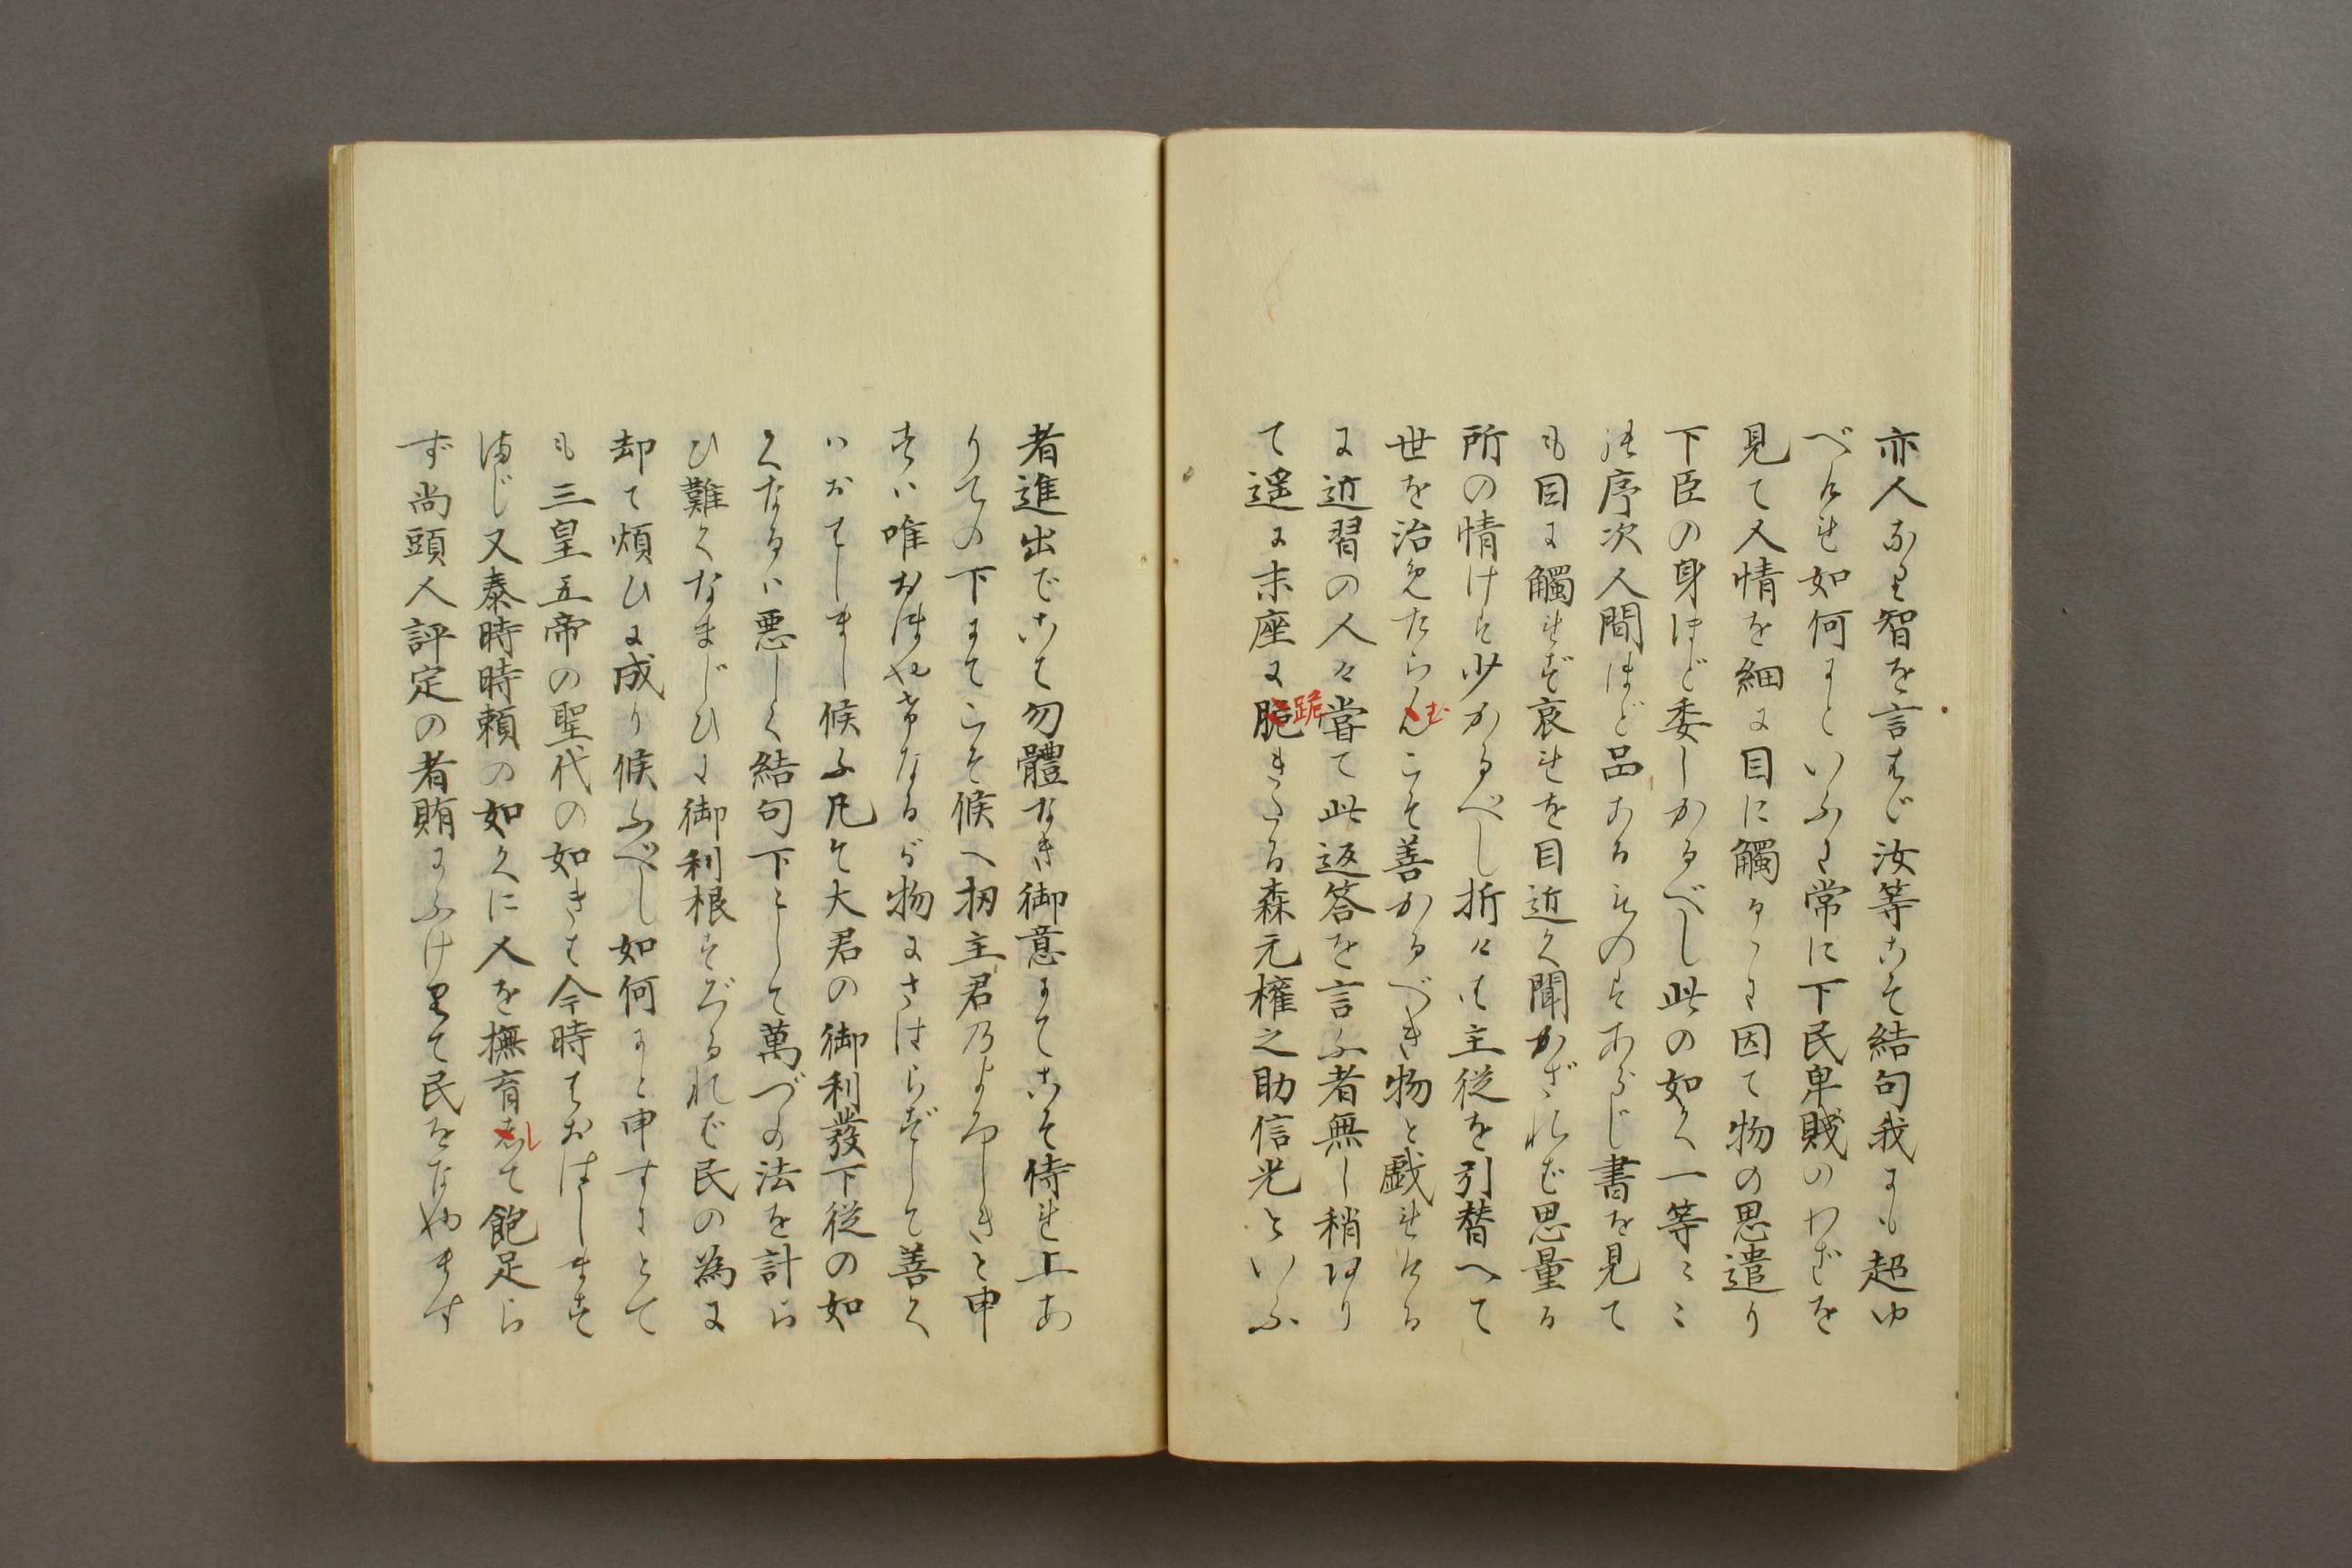 亦人なり智を言はゞ汝等こそ結句我にも超ゆ
べけれ如何にといふに常に下民卑賤のわざを
見て人情を細に目に觸るゝに因て物の思遣り
下臣の身ほど委しかるべし此の如く一等〻〻
の序次人間ほど品あるものはあらじ書を見て
も目に觸れず哀れを目近く聞かざれば思量る
所の情けは少かるべし折々は主從を引替へて
世を治めたらんむこそ善かるべき物と戯れける
に近習の人々當て此返答を言ふ者無し稍有り
て遥に末座に脆跪きゐる森元權之助信光といふ
者進出でこは勿體なき御意にてこそ侍れ上あ
りての下にてこそ候へ扨主君のよろしきと申
すは唯おほやけなるが物にさはらずして善く
はおはしまし候ふ凡そ大君の御利發下從の如
くなるは悪しく結句下として萬づの法を計ら
ひ難くなまじひに御利根すぎるれば民の為に
却て煩ひに成り候ふべし如何にと申すにとて
も三皇五帝の聖代の如きは今時はおはします
まじ又泰時時頼の如くに人を撫育志して飽足ら
ず尚頭人評定の者賄にふけりて民をなやます